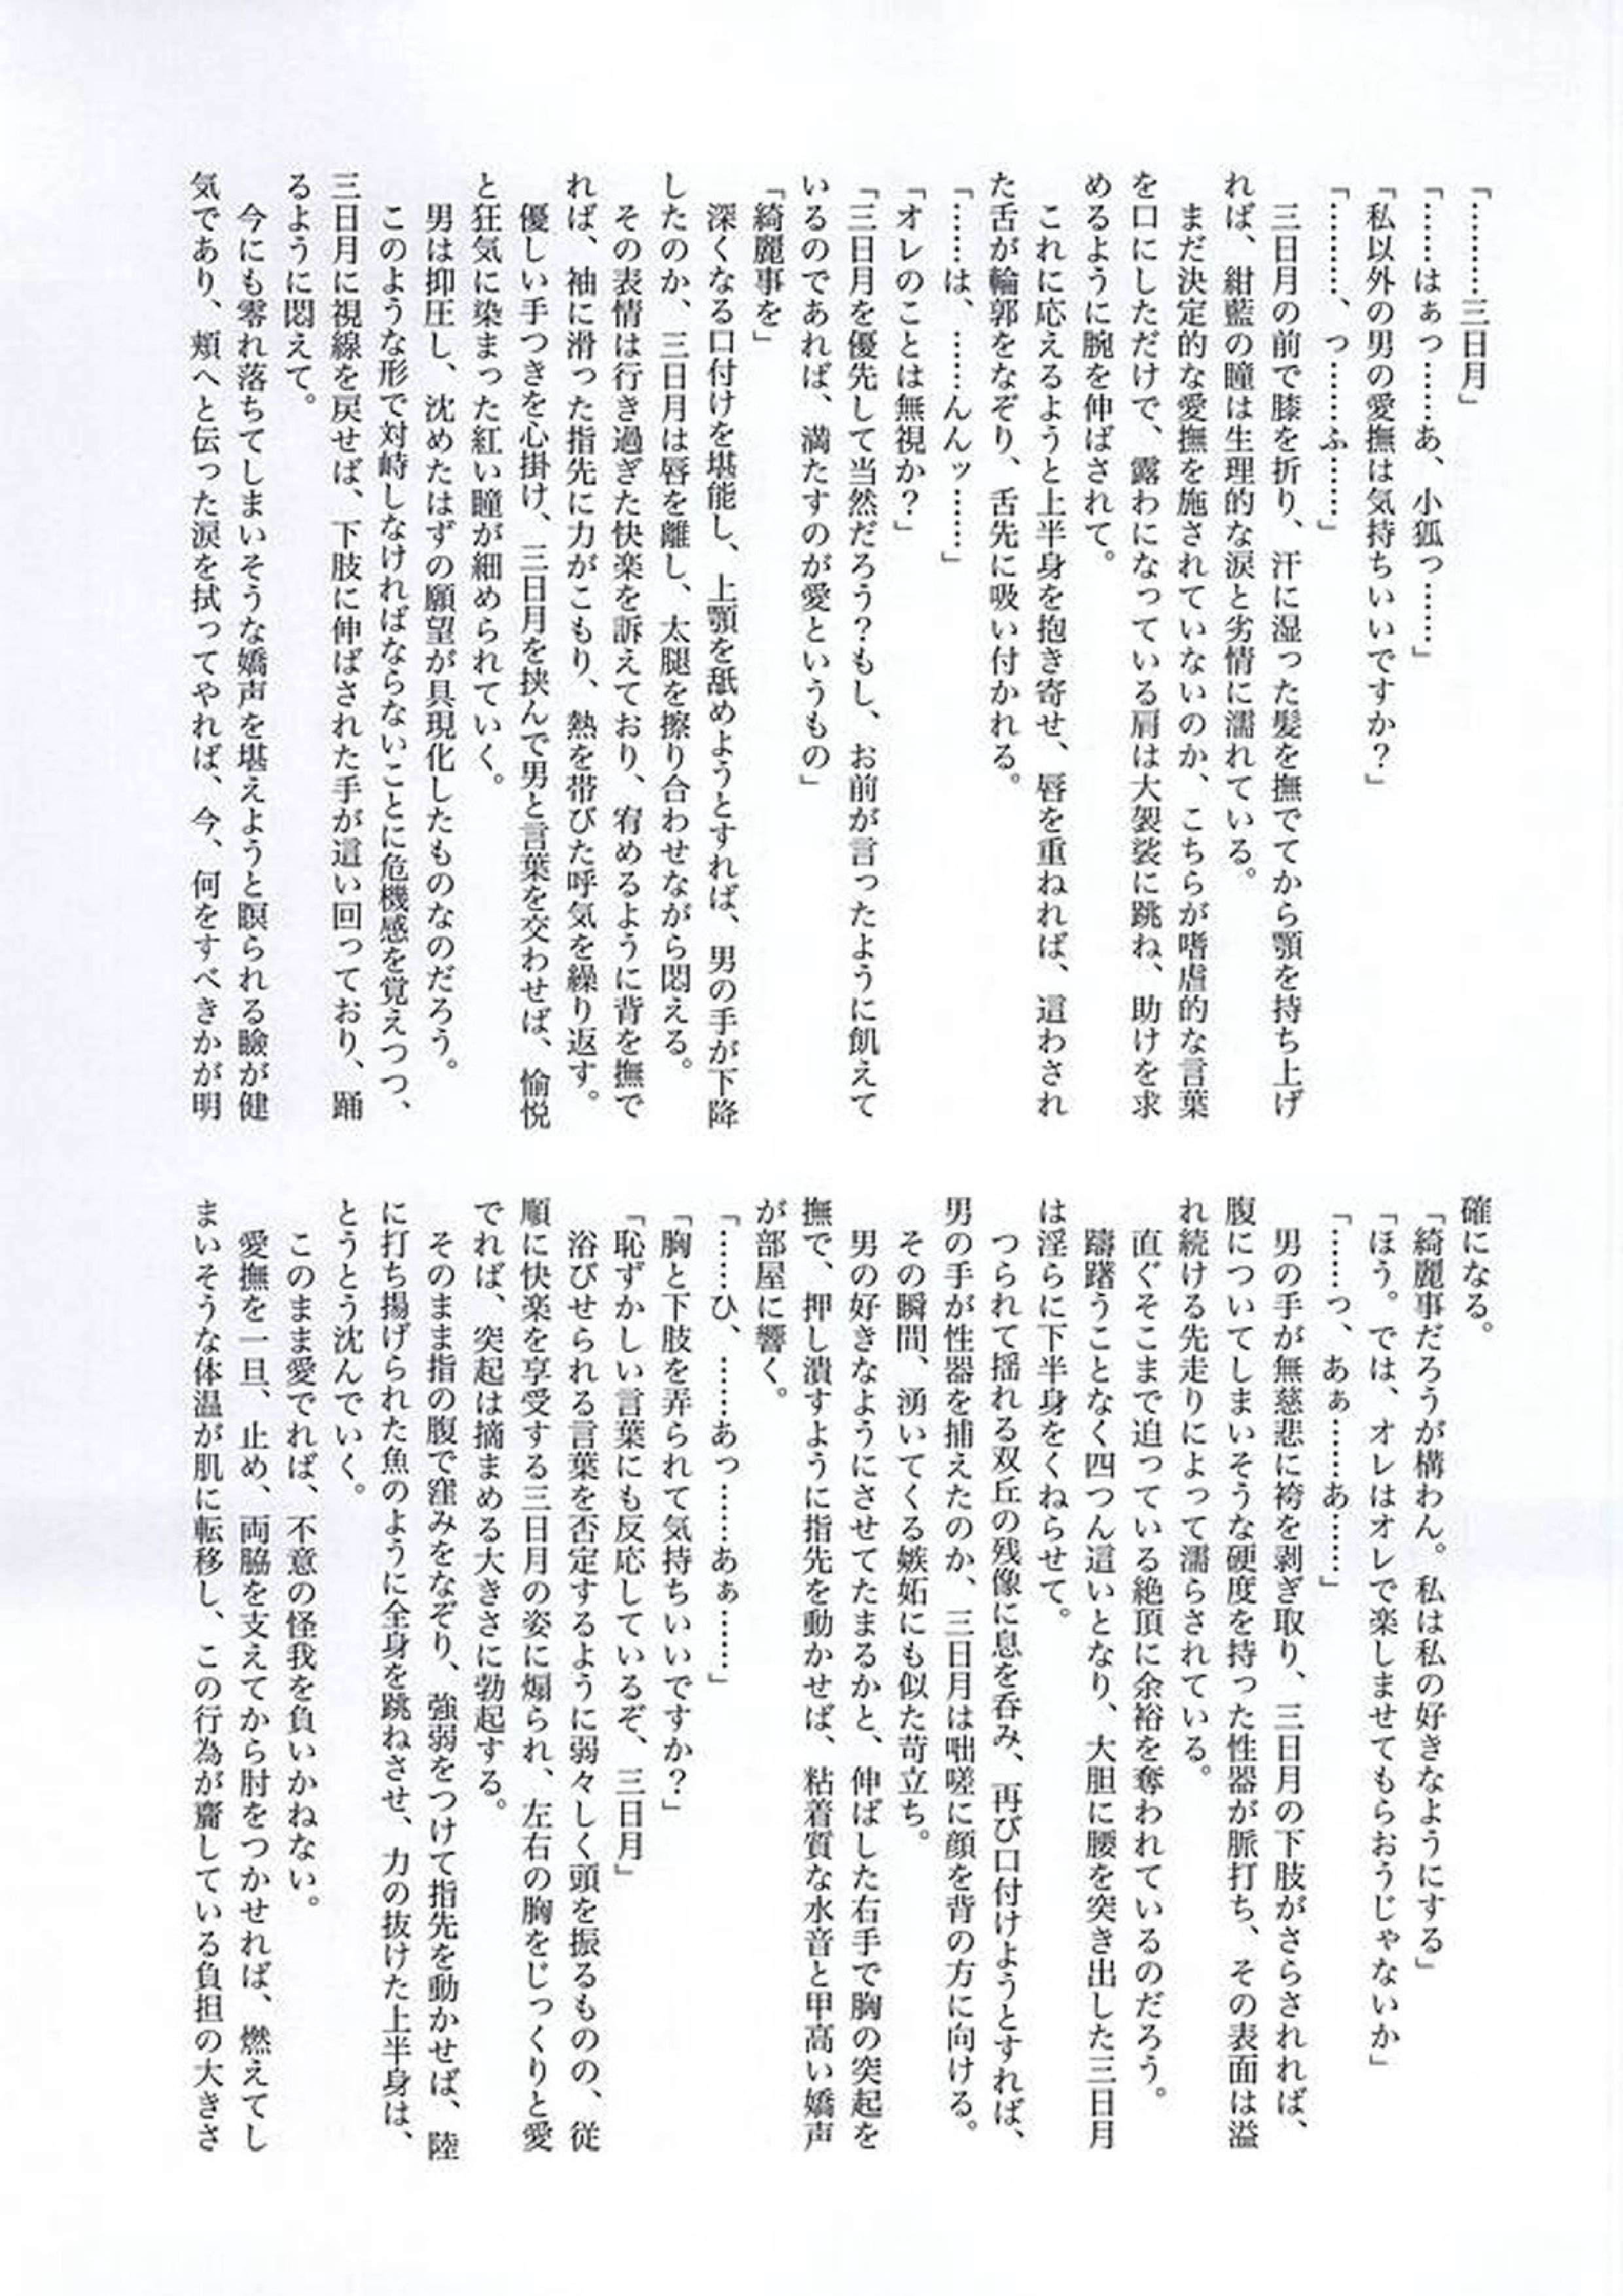 「………三日月」
「……はぁっ……あ、小狐っ……」
「私以外の男の愛撫は気持ちいいですか？」
「………、っ……ふ……」
　三日月の前で膝を折り、汗に湿った髪を撫でてから顎を持ち上げ
れば、紺藍の瞳は生理的な涙と劣情に濡れている。
　まだ決定的な愛撫を施されていないのか、こちらが嗜虐的な言葉
を口にしただけで、露わになっている肩は大袈裟に跳ね、助けを求
めるように腕を伸ばされて。
　これに応えるようと上半身を抱き寄せ、唇を重ねれば、這わされ
た舌が輪郭をなぞり、舌先に吸い付かれる。
「……は、……んんッ……」
「オレのことは無視か？」
「三日月を優先して当然だろう？もし、お前が言ったように飢えて
いるのであれば、満たすのが愛というもの」
「綺麗事を」
　深くなる口付けを堪能し、上顎を舐めようとすれば、男の手が下降
したのか、三日月は唇を離し、太腿を擦り合わせながら悶える。
　その表情は行き過ぎた快楽を訴えており、宥めるように背を撫で
れば、袖に滑った指先に力がこもり、熱を帯びた呼気を繰り返す。
　優しい手つきを心掛け、三日月を挟んで男と言葉を交わせば、愉悦
と狂気に染まった紅い瞳が細められていく。
　男は抑圧し、沈めたはずの願望が具現化したものなのだろう。
　このような形で対峙しなければならないことに危機感を覚えつつ、
三日月に視線を戻せば、下肢に伸ばされた手が這い回っており、踊
るように悶えて。
　今にも零れ落ちてしまいそうな嬌声を堪えようと瞑られる瞼が健
気であり、頬へと伝った涙を拭ってやれば、今、何をすべきかが明
確になる。
「綺麗事だろうが構わん。私は私の好きなようにする」
「ほう。では、オレはオレで楽しませてもらおうじゃないか」
「……っ、あぁ……あ……」
　男の手が無慈悲に袴を剥ぎ取り、三日月の下肢がさらされれば、
腹についてしまいそうな硬度を持った性器が脈打ち、その表面は溢
れ続ける先走りによって濡らされている。
　直ぐそこまで迫っている絶頂に余裕を奪われているのだろう。
　躊躇うことなく四つん這いとなり、大胆に腰を突き出した三日月
は淫らに下半身をくねらせて。
　つられて揺れる双丘の残像に息を呑み、再び口付けようとすれば、
男の手が性器を捕えたのか、三日月は咄嗟に顔を背の方に向ける。
　その瞬間、湧いてくる嫉妬にも似た苛立ち。
　男の好きなようにさせてたまるかと、伸ばした右手で胸の突起を
撫で、押し潰すように指先を動かせば、粘着質な水音と甲高い嬌声
が部屋に響く。
「……ひ、……あっ……あぁ……」
「胸と下肢を弄られて気持ちいいですか？」
「恥ずかしい言葉にも反応しているぞ、三日月」
　浴びせられる言葉を否定するように弱々しく頭を振るものの、従
順に快楽を享受する三日月の姿に煽られ、左右の胸をじっくりと愛
でれば、突起は摘まめる大きさに勃起する。
　そのまま指の腹で窪みをなぞり、強弱をつけて指先を動かせば、陸
に打ち揚げられた魚のように全身を跳ねさせ、力の抜けた上半身は、
とうとう沈んでいく。
　このまま愛でれば、不意の怪我を負いかねない。
　愛撫を一旦、止め、両脇を支えてから肘をつかせれば、燃えてし
まいそうな体温が肌に転移し、この行為が齎している負担の大きさ